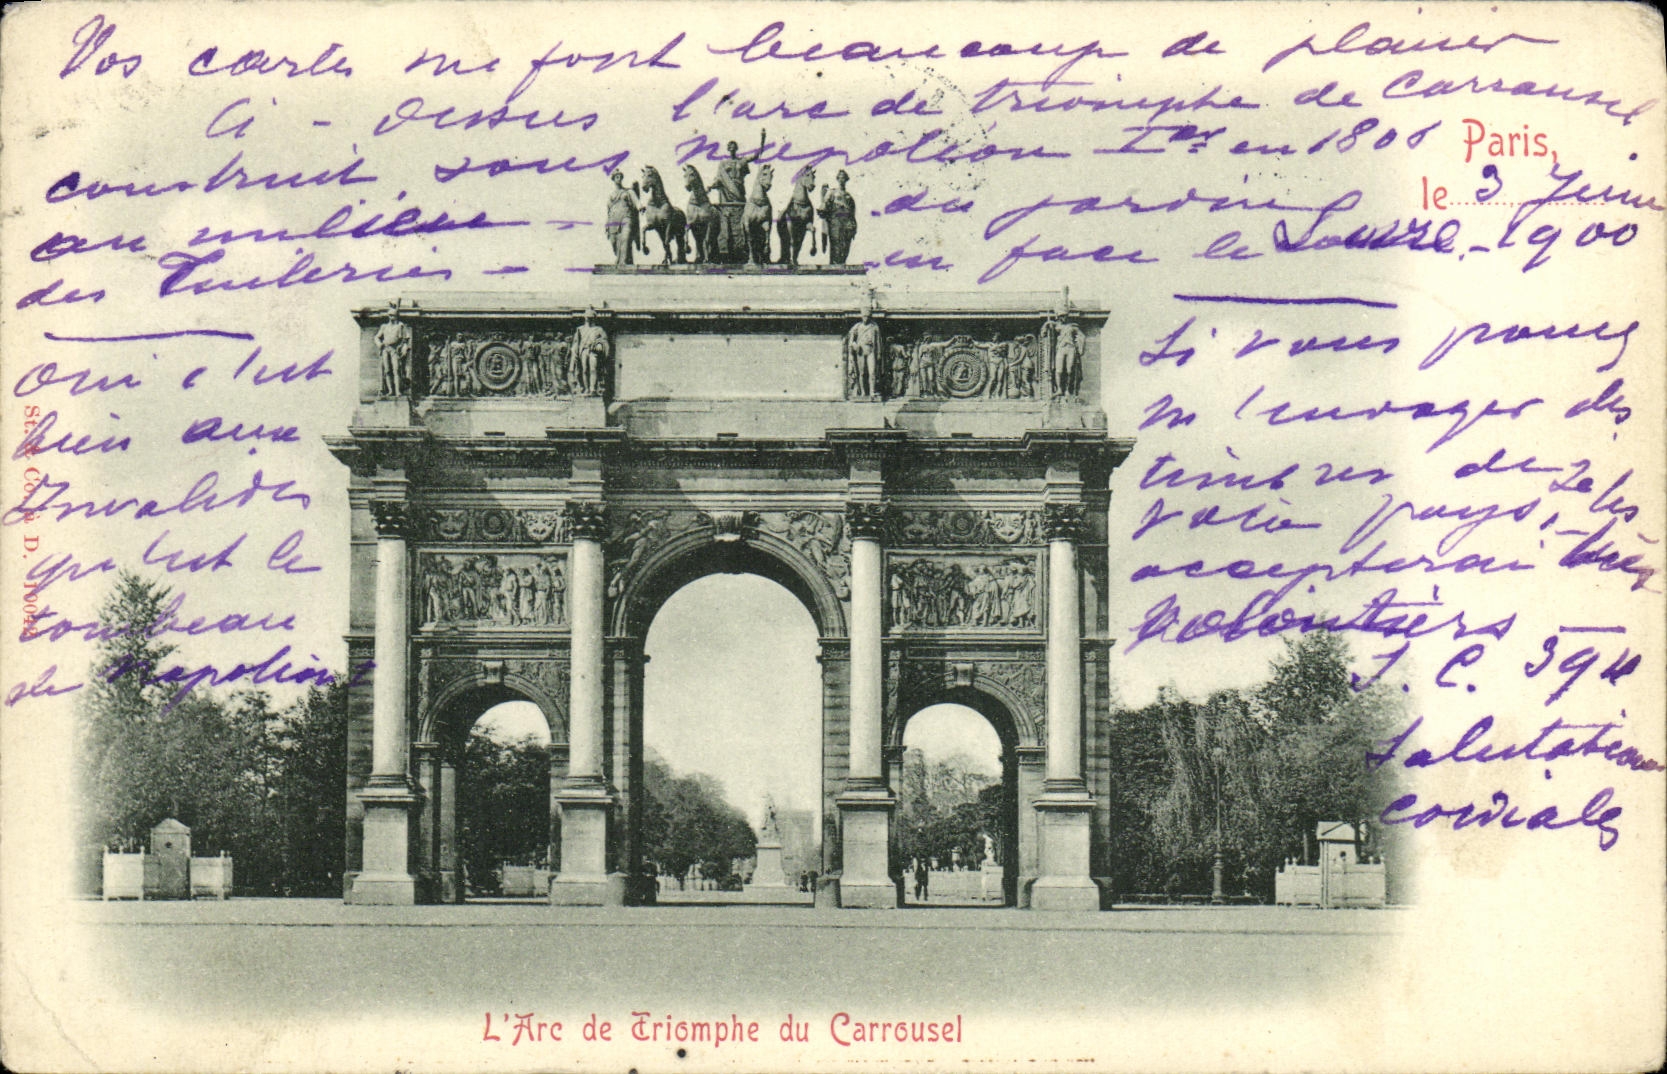 Vos cartes me font beaucoup de plaisir
Ci-dessus l'arc de triomphe de Carrousel
construit sous Napoléon Ier en 1806
au milieu - du jardin
des Tuileries - - en face le Louvre. -
Paris,
le 3 Juin
1900
Oui c'est
bien aux
Invalides
qu'est le
tombeau
de Napoléon
Si vous pouvez
m'envoyer des
timbres de
votre pays, je les
accepterai très
volontiers -
J. C. 394
Salutations
cordiales
St. & Co. D.
L'Arc de Triomphe du Carrousel